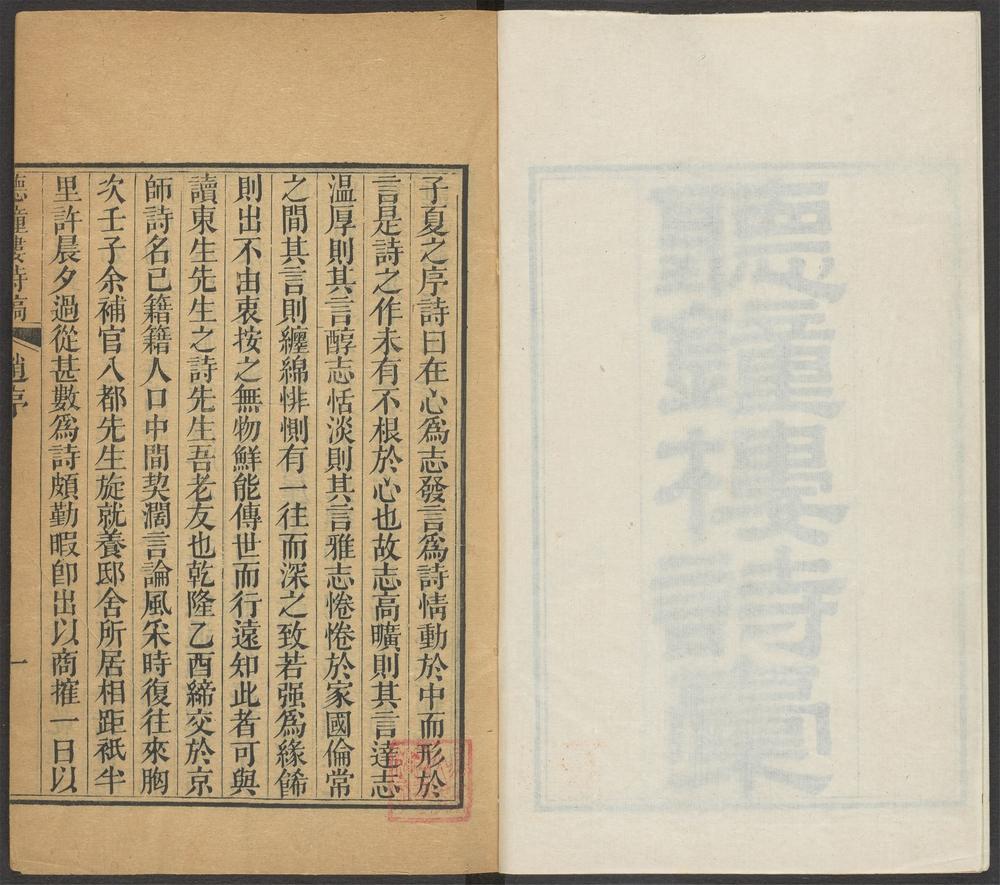 子夏之序詩曰在心爲志發言爲詩情動於中而形於
言是詩之作未有不根於心也故志高曠則其言達志
温厚則其言醇志恬淡則其言雅志惓惓於家國倫常
之間其言則纏綿悱惻有一往而深之致若强爲緣餙
則出不由衷按之無物鮮能傳世而行遠知此者可與
讀東生先生之詩先生吾老友也乾隆乙酉締交於京
師詩名已籍籍人口中間契濶言論風采時復往來胸
次壬子余補官入都先生旋就養邸舍所居相距祇半
里許晨夕過從甚數爲詩頗勤暇卽出以商搉一日以
聽鐘樓詩稿
趙序
一